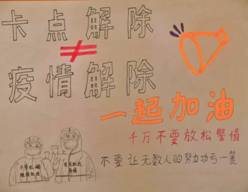 卡点解除
≠
疫情解除
一起加油
千万不要放松警惕
不要让无数人的努力功亏一篑